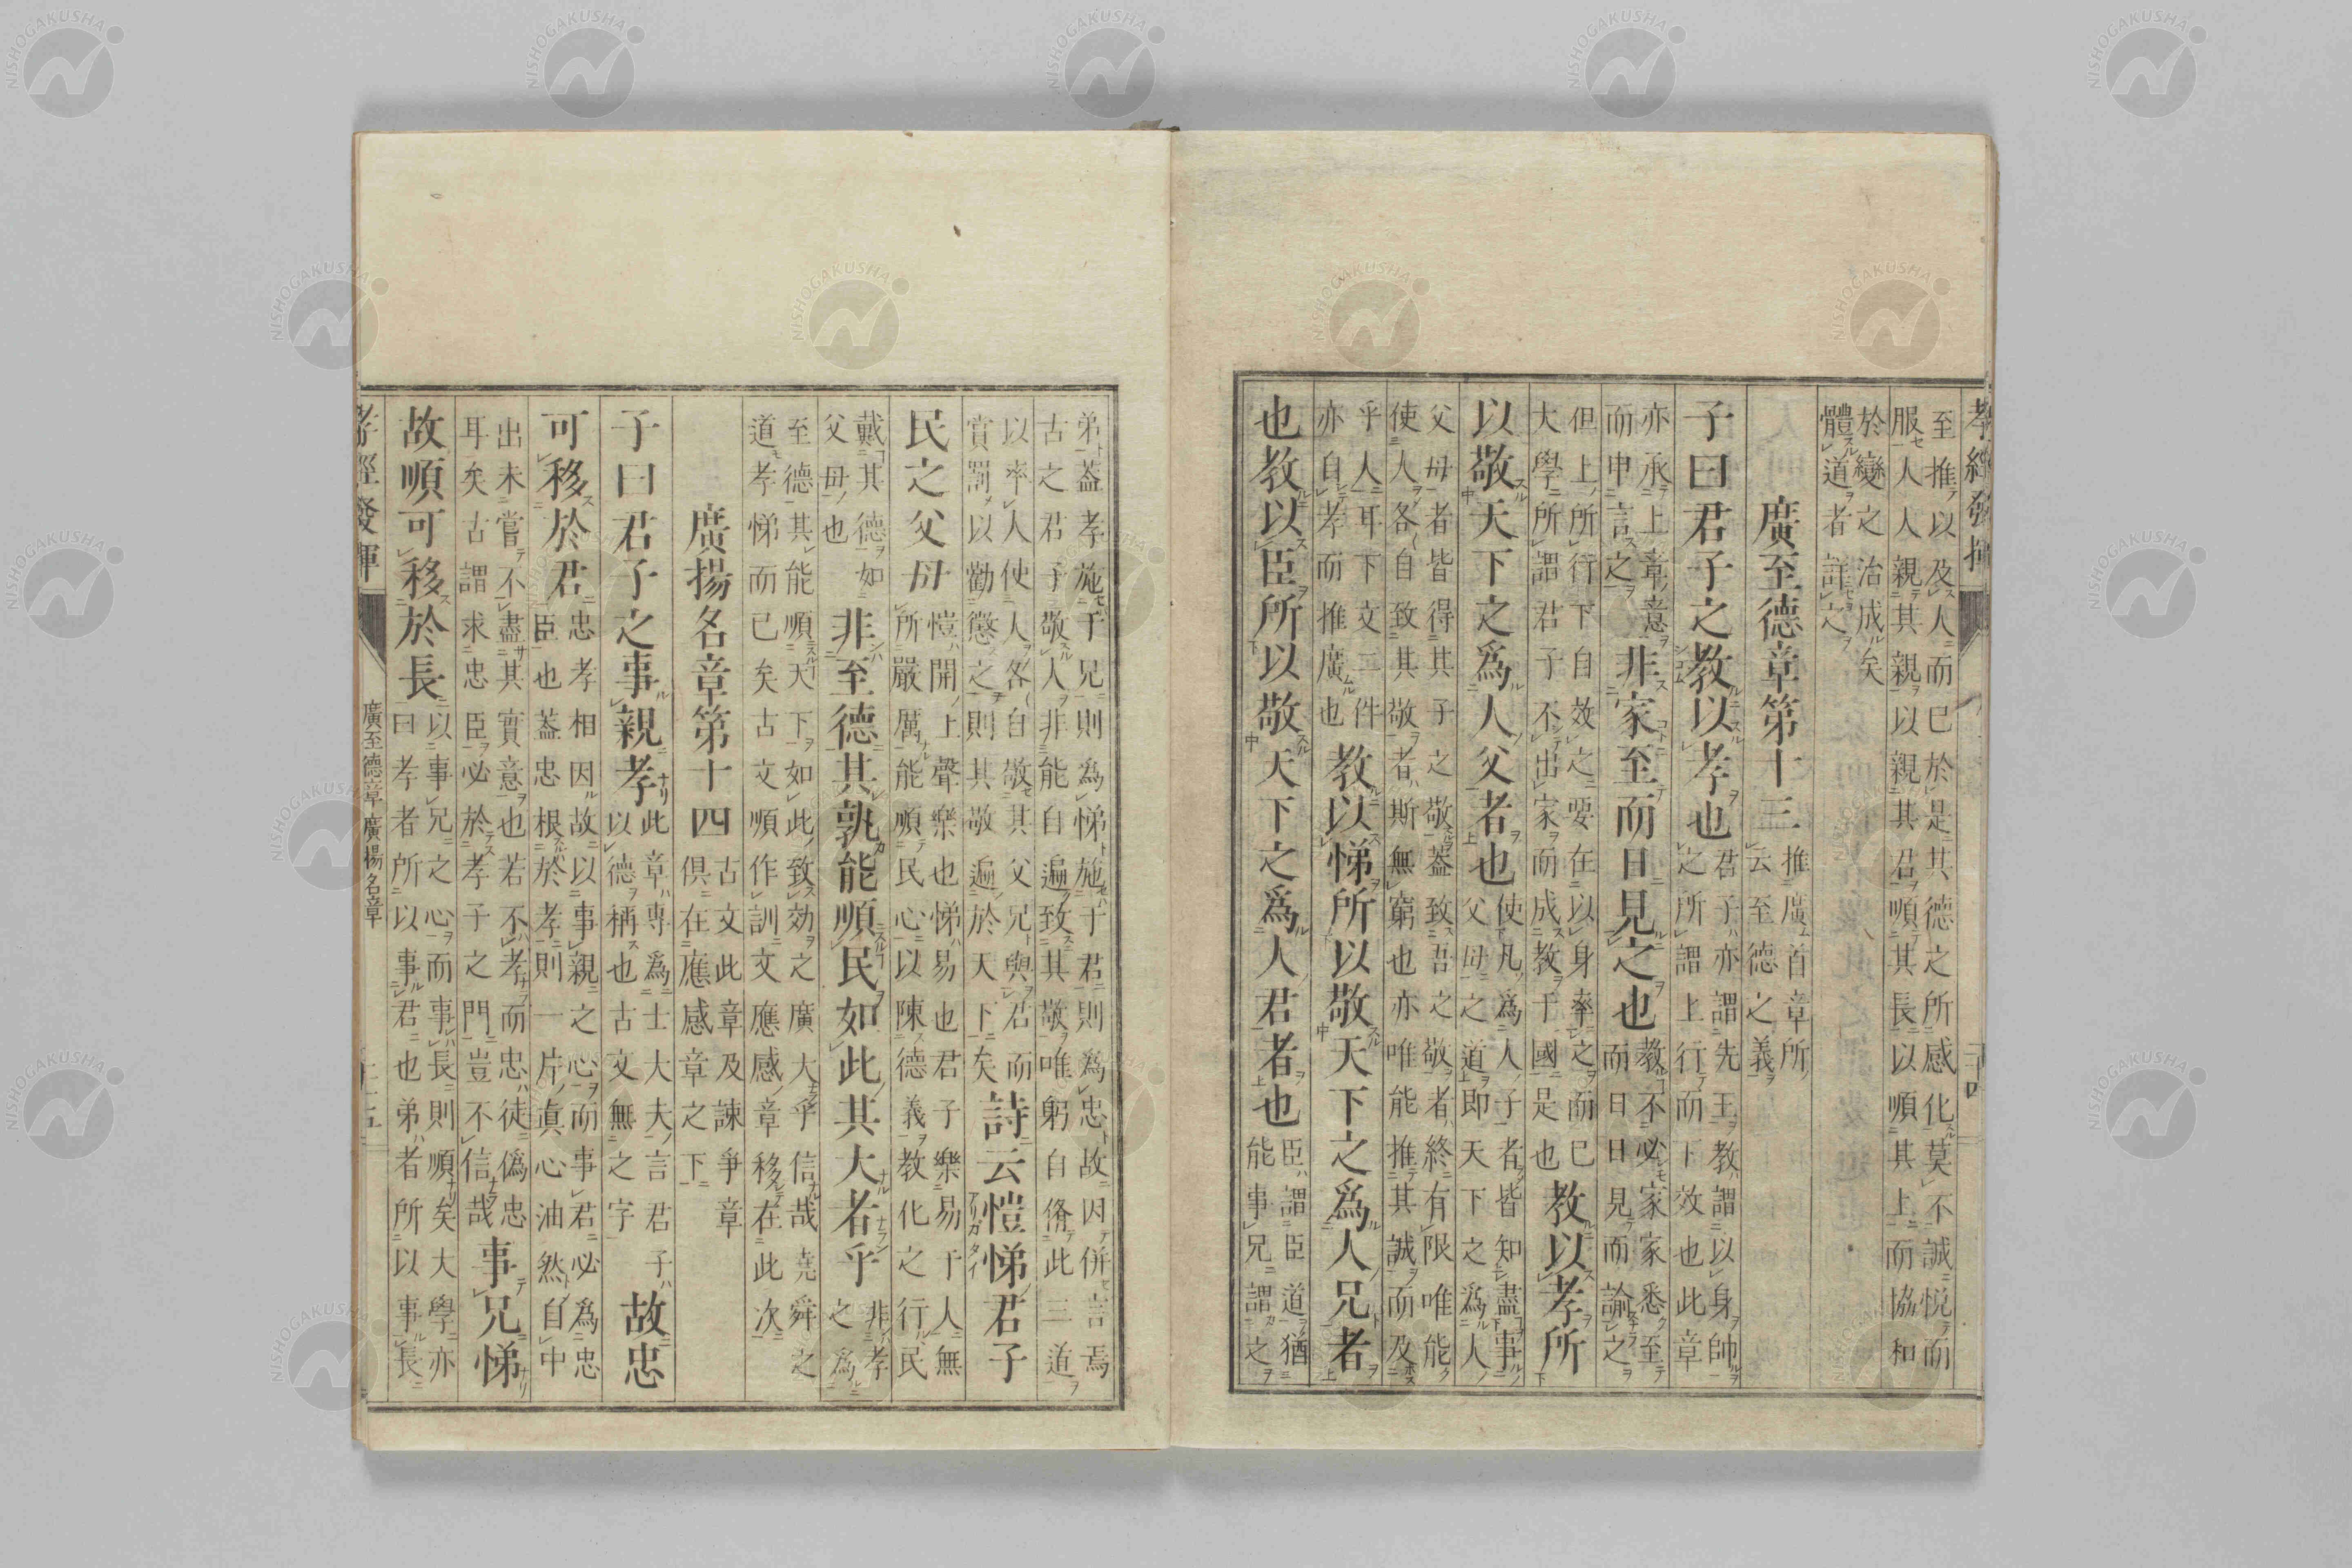 孝經發揮
至推以及人而已於是其德之所感化莫不誠悅而
服人人親其親以親其君順其長以順其上而協和
於變之治成矣
體道者許之
廣至德章第十三推廣首章所
云至德之義
子曰君子之教以孝也君子亦謂先王教謂以身帥
之所謂上行而下效也此章
亦承上章意
而申言之非家至而日見之也教不必家家悉至
而日日見而諭之
但上所行下自效之要在以身率之而已
大學所謂君子不出家而成教于國是也教以孝所
以敬天下之爲人父者也使凡爲人子者皆知盡事
父母之道即天下之爲人
父母者皆得其子之敬蓋致吾之敬者終有限唯能
使人各自致其敬者斯無窮也亦唯能推其誠而及
乎人耳下文二件
亦自孝而推廣也教以悌所以敬天下之爲人兄者
也教以臣所以敬天下之爲人君者也臣謂臣道猶
能事兄謂之
弟蓋孝施于兄則為悌施于君則為忠故因併言焉
古之君子敬人非能自遍致其敬唯躬自脩此三道
以率人使人各自敬其父兄與君而
賞罰以勸懲之則其敬遍於天下矣詩云愷悌君子
民之父母愷開上聲樂也悌易也君子樂易于人無
所嚴厲能順民心以陳德義教化之行民
戴其德如
父母也非至德其孰能順民如此其大者乎非孝
之為
至德其能順天下如此致効之廣大乎信哉堯舜之
道孝悌而已矣古文順作訓文應感章移在此次
廣揚名章第十四古文此章及諫爭章
俱在應感章之下
子曰君子之事親孝此章專為士大夫言君子
以德稱也古文無之字故忠
可移於君忠孝相因故以事親之心而事君必為忠
臣也蓋忠根於孝則一片眞心油然自中
出未嘗不盡其實意也若不孝而忠徒偽忠
耳矣古謂求忠臣必於孝子之門豈不信哉事兄悌
故順可移於長以事兄之心而事長則順矣大學亦
曰孝者所以事君也弟者所以事長
孝經發揮
廣至德章 廣揚名章